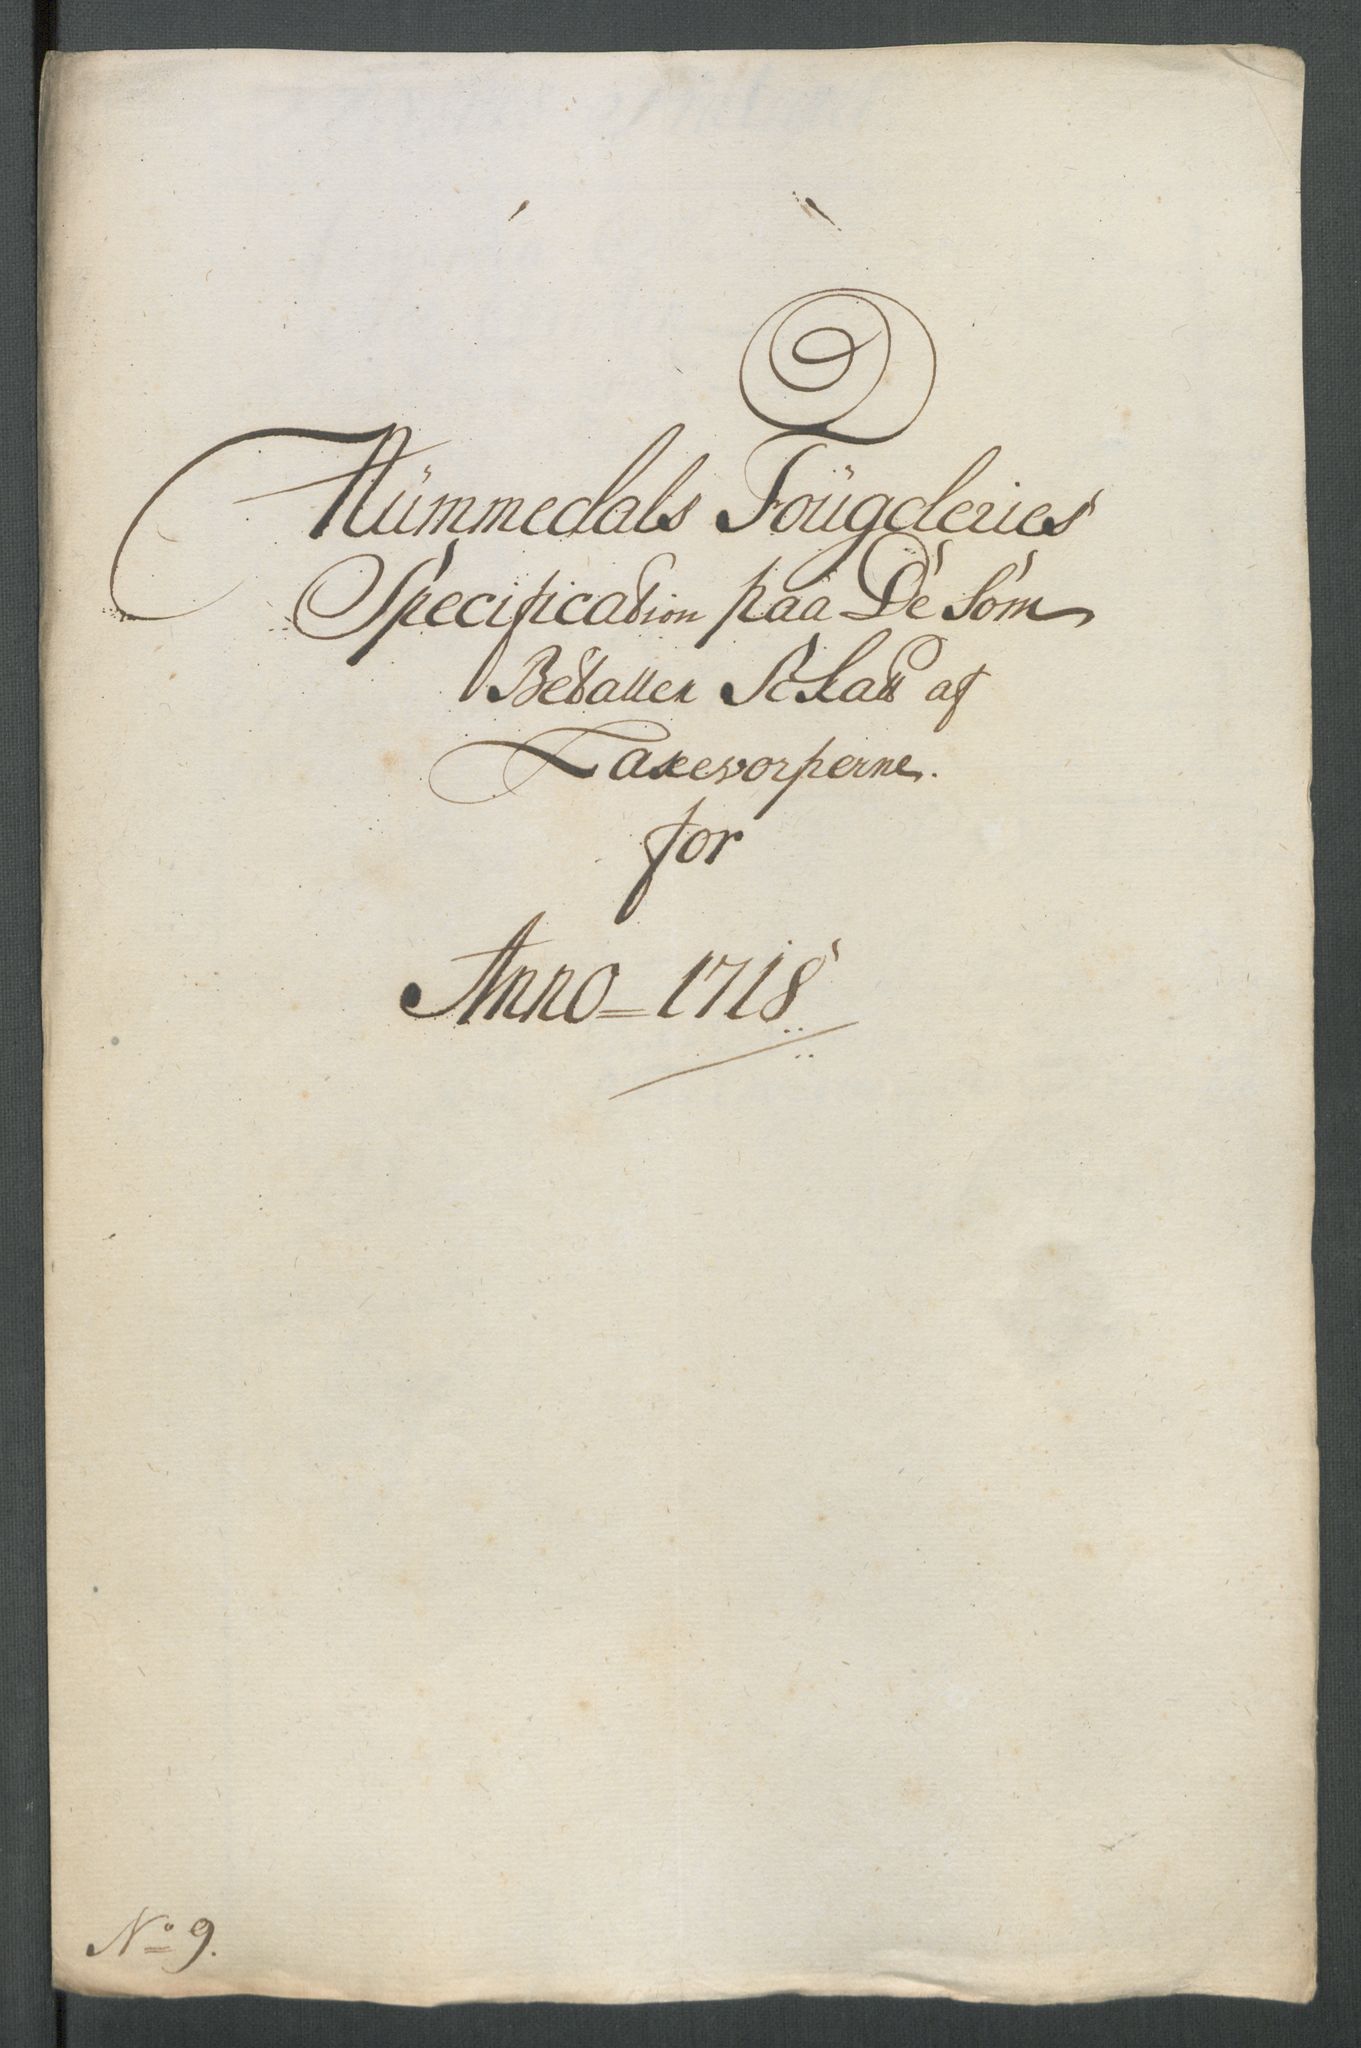 Nümmedals Foügderies
Specification paa De Som
Betaller Schatt af
Laxevorperne.
for
Anno = 1718
No 9.